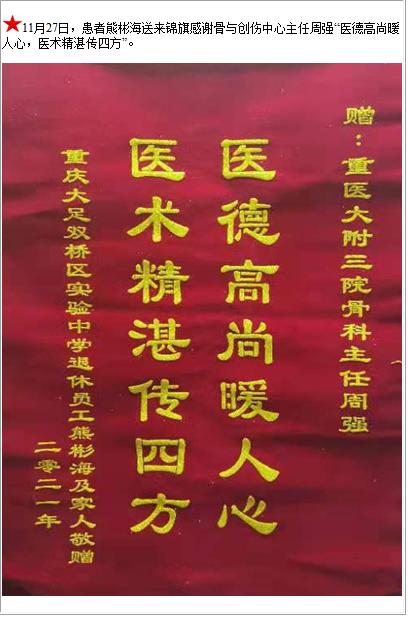 ★11月27日，患者熊彬海送来锦旗感谢骨与创伤中心主任周强“医德高尚暖
人心，医术精湛传四方”。
赠：重医大附三院骨科主任周强
医德高尚暖人心
医术精湛传四方
重庆大足双桥区实验中学退休员工熊彬海及家人敬赠
二零二一年